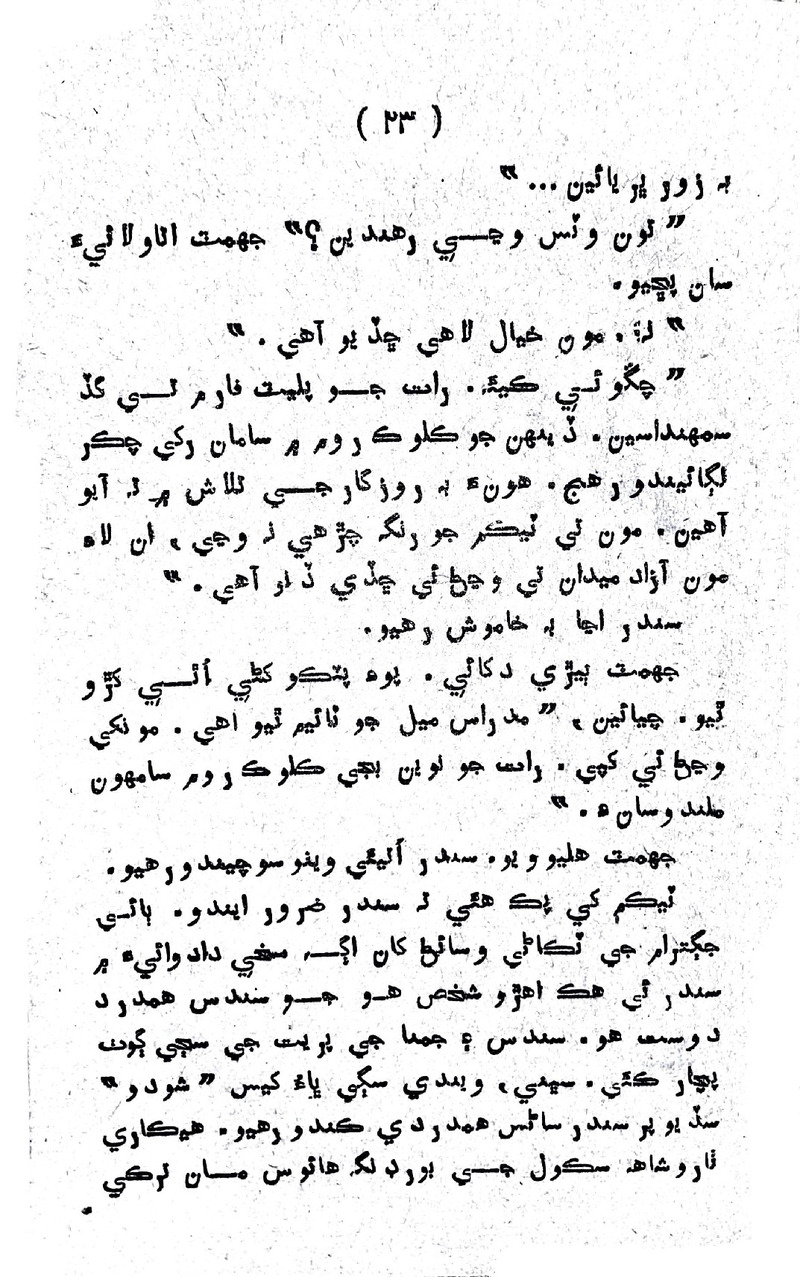 ( ٢٣ )
به زور ڀريائين ... ”
” تون وٽس وڃـــي رهندين؟“ جهمٽ اتاولائيءَ
سان پڇيو.
” نہ. مون خيال لاهي ڇڏيو آهي. “
” چڱو ٿـــي ڪيئہ. رات جـــو پليٽ فارم تـــي گڏ
سمهنداسين. ڏينهن جو ڪلوڪ روم ۾ سامان رکي چڪر
لڳائيندو رهج. هونءَ به روزگار جـــي تلاش ۾ تہ آيو
آهين. مون تي ٽيڪم جو رنگہ چڙهي نہ وڃي، ان لاءِ
مون آزاد ميدان تي وڃڻ ئي ڇڏي ڏنو آهي. “
سندر اڃا به خاموش رهيو.
جهمٽ ٻيڙي دکائي. پوءِ پٽڪو کڻي اُٿـــي کڙو
ٿيو. چيائين، ” مدراس ميل جو ٽائيم ٿيو آهي. مونکي
وڃڻ ئي کپي. رات جو نوين بجي ڪلوڪ روم سامهون
ملندوسانءِ. “
جهمٽ هليو ويو. سندر اُتيئي ويٺو سوچيندو رهيو.
ٽيڪم کي پڪ هئي تہ سندر ضرور ايندو. ڀائـي
جڳترام جي ٽڪاڻي وسائڻ کان اڳـــہ سڄي دادوائيءَ ۾
سندر ئي هڪ اهڙو شخص هـو جـــو سندس همدرد
دوست هو. سندس ۽ جمنا جي پريت جي سڄي ڳوٺ
پچار ڪئي. سڀني، ويندي سڳي ڀاءُ کيس ” شودو “
سڏيو پر سندر ساڻس همدردي ڪندو رهيو. هيڪاري
ٺاروشاهہ سڪول جـــي بورڊنگہ هائوس مـــان ترڪي